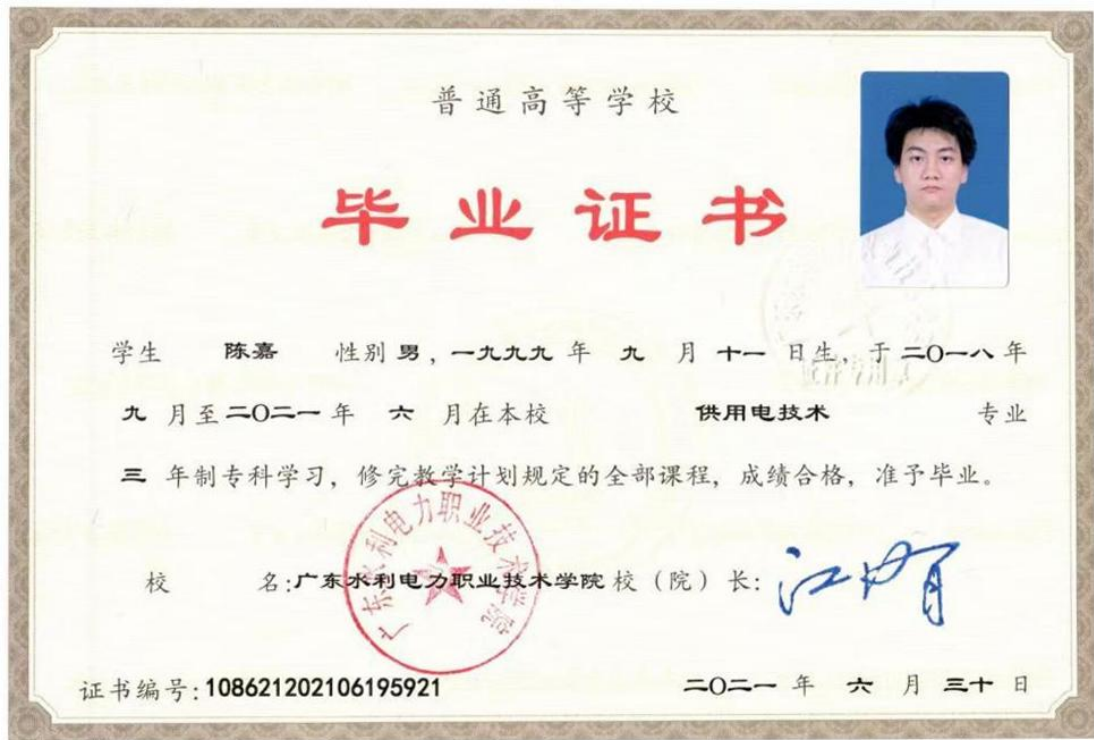 普通高等学校
毕业证书
学生 陈嘉 性别 男，一九九九 年 九 月 十一 日生，于 二〇一八 年
九 月至 二〇二一 年 六 月在本校 供用电技术 专业
三 年制专科学习，修完教学计划规定的全部课程，成绩合格，准予毕业。
校 名：广东水利电力职业技术学院 校（院）长：
广东水利电力职业技术学院
证书编号：108621202106195921
二〇二一 年 六 月 三十 日